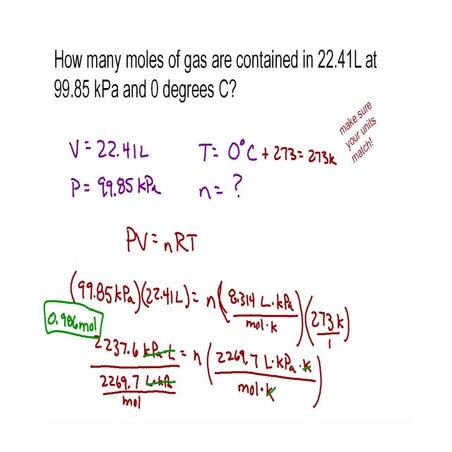 How many moles of gas are contained in 22.41L at
99.85 kPa and 0 degrees C?
make sure
your units
match!
V = 22.41L
T = 0°C + 273 = 273k
P = 99.85 kPa
n = ?
PV = nRT
(99.85 kPa)(22.41L) = n (8.314 L·kPa / mol·k) (273k / 1)
0.986 mol
2237.6 kPa·L / 2269.7 L·kPa / mol = n (2269.7 L·kPa·k / mol·k)